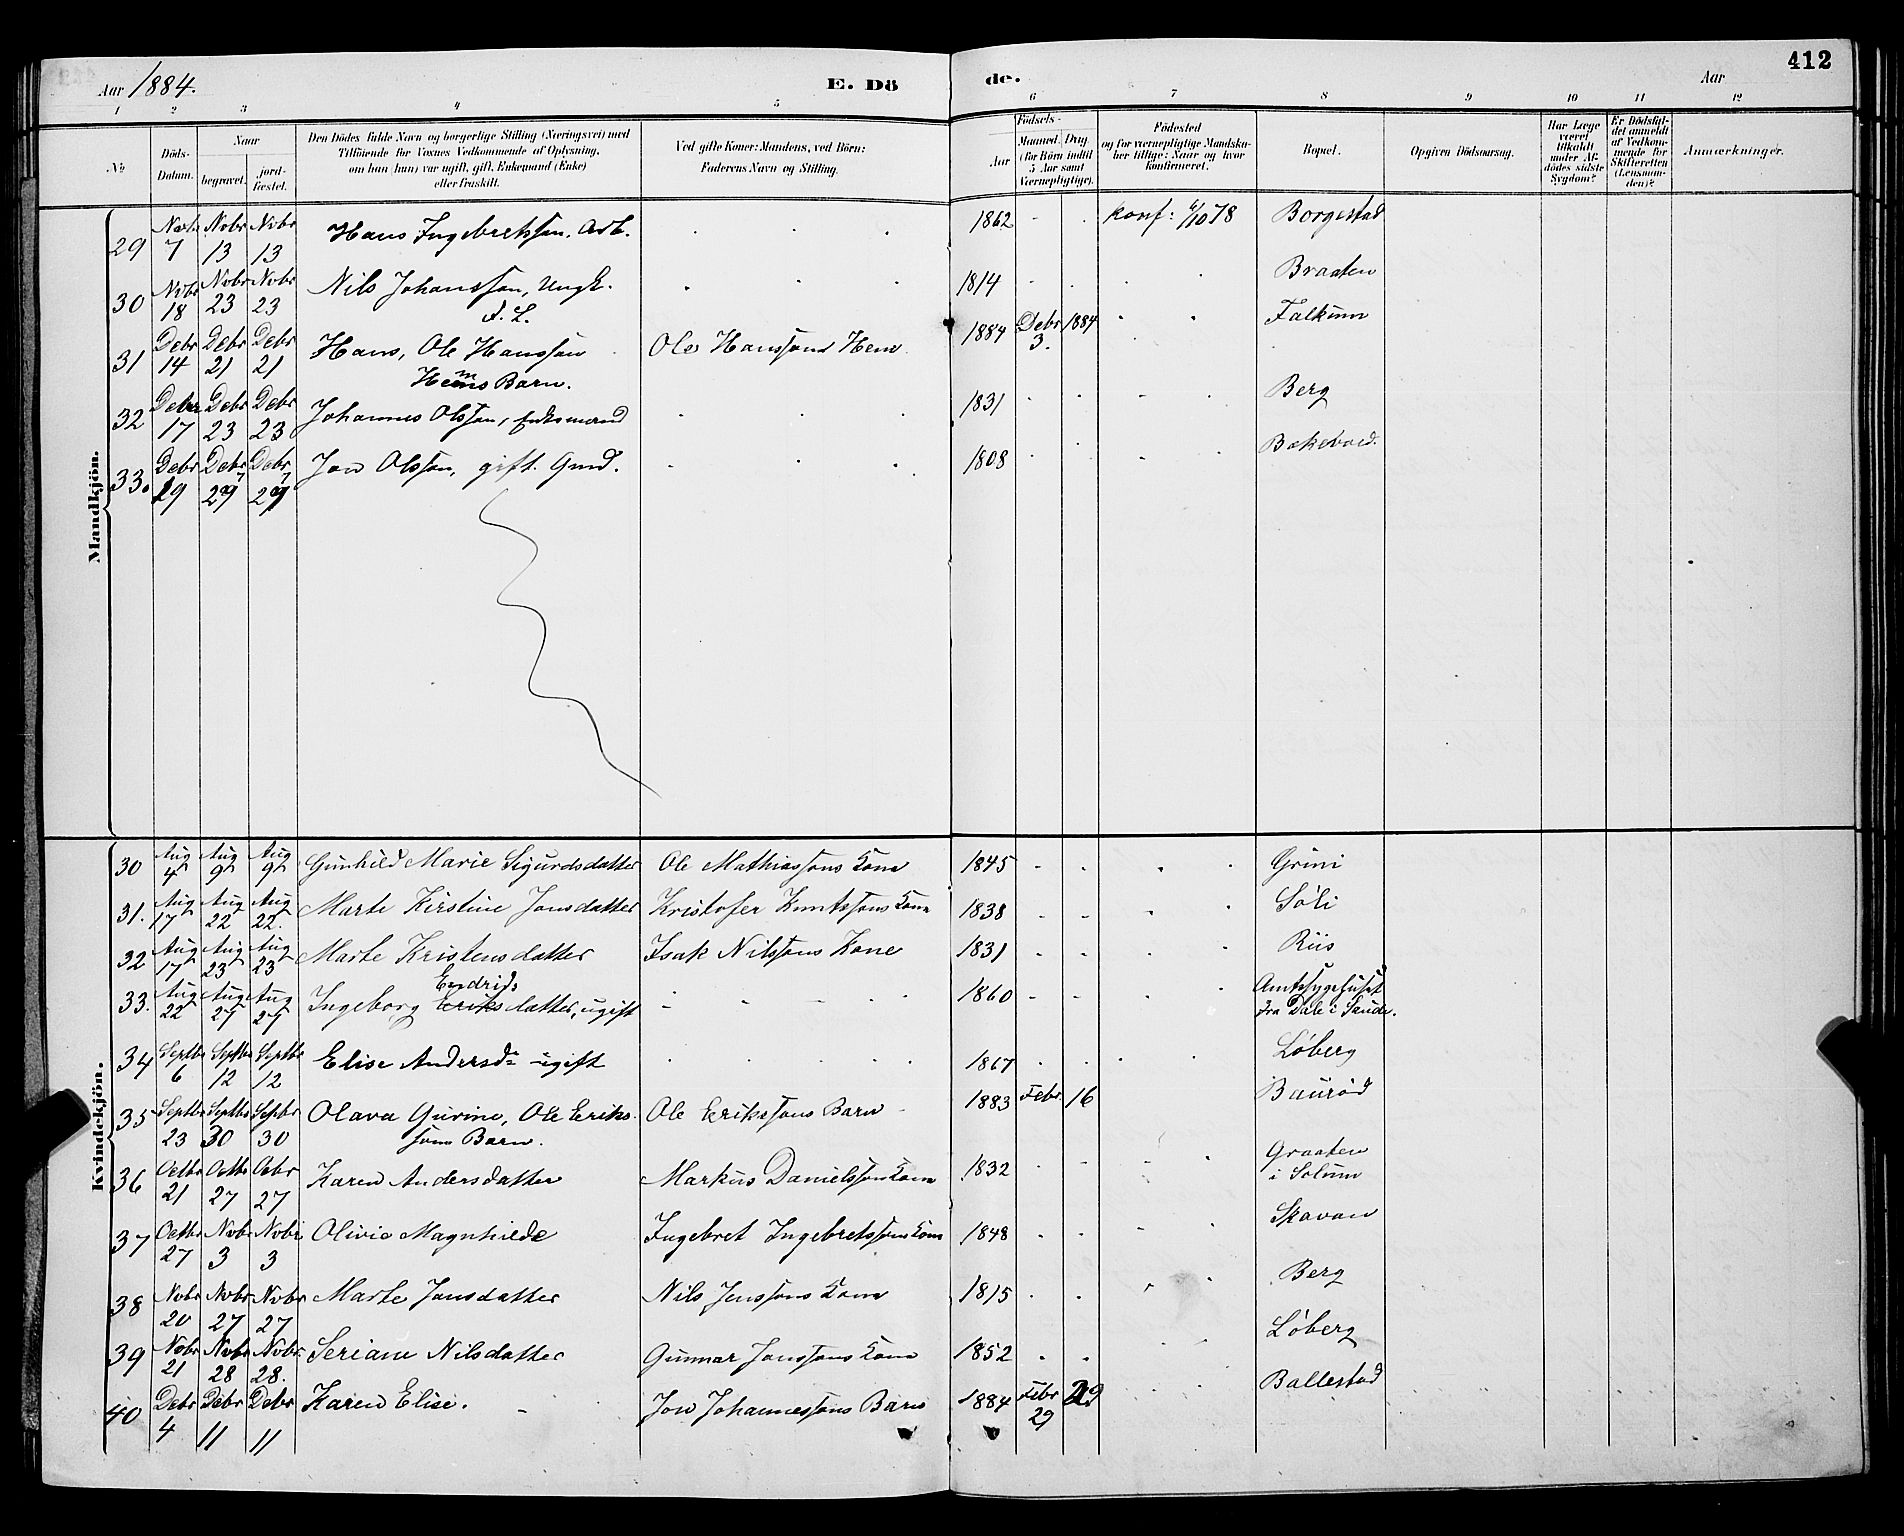 412
Aar 1884. E. Dö de. Aar
1 2 3 4 5 6 7 8 9 10 11 12
No
Döds-Datum.
Naar
begravet.
jord-fæstet.
Den Dödes fulde Navn og borgerlige Stilling (Næringsvei) med
Tilföiende for Voxnes Vedkommende af Oplysning,
om han (hun) var ugift, gift, Enkemand (Enke)
eller fraskilt.
Ved gifte Koner: Mandens, ved Börn:
Faderens Navn og Stilling.
Födsels-
Aar
Maaned. Dag
(for Börn indtil
5 Aar samt
Værnepligtige).
Födested
og for værnepligtige Mandska-
ber tillige: Naar og hvor
konfirmeret.
Bopæl.
Opgiven Dödsaarsag.
Har Læge
været
tilkaldt
under Af-
dödes sidste
Sygdom?
Er Dödsfal-
det anmeldt
af Vedkom-
mende for
Skifteretten
(Lensman-
den)?
Anmærkninger.
Mandkjön.
29 Nobr 7 Nobr 13 Nobr 13 Hans Ingebretssøn, Arb. 1862 konf: 6/10 78 Borgestad
30 Nobr 18 Nobr 23 Nobr 23 Nils Johanssøn, Ungk. 1814 Braaten
F. L.
31 Debr 14 Debr 21 Debr 21 Hans, Ole Hanssøn Ole Hanssøns Hem 1884 Debr 3. 1884 Falkum
Hems Barn.
32 Debr 17 Debr 23 Debr 23 Johannes Olssøn, Enkemand 1831 Berg
33. Debr 19 Debr 29 Debr 29 Jon Olssøn, gift. Gmd. 1808
Kvindekjön.
30 Aug 4 Aug 9 Aug 9 Gunhild Marie Sigurdsdatter Ole Mathiassøns Kone 1845 Grini
31. Aug 17 Aug 22 Aug 22. Marte Kirstine Jonsdatter Kristofer Knutssøns Kone 1838 Soli
32 Aug 17 Aug 23 Aug 23 Marte Kristensdatter Isak Nilssøns Kone 1831 Riis
Endrids
33. Aug 22 Aug 27 Aug 27 Ingeborg Eriksdatter, ugift 1860 Amtssygehuset
fra Dale i Saude.
34 Septbr 6 Septbr 12 Septbr 12 Elise Andersdr ugift 1867 Løberg
35 Septbr 23 Septbr 30 Septbr 30 Olava Gurine, Ole Eriks- Ole Erikssøns Barn 1883 Febr 16 Baurød
søns Barn.
36 Octbr 21 Octbr 27 Octbr 27 Karen Andersdatter Markus Danielssøns Kone 1832 Graaten
i Solum
37 Octbr 27 Nobr 3 Nobr 3 Olivia Magnhilde Ingebret Ingebretssøns Kone 1848 Skavan
38 Nobr 20 Nobr 27 Nobr 27 Marte Jonsdatter Nils Jenssøns Kone 1815 Berg
39 Nobr 21 Nobr 28 Nobr 28. Seriane Nilsdatter Gunnar Jonssøns Kone 1852 Løberg
40 Debr 4 Debr 11 Debr 11 Karen Elise. Jon Johannessøns Barn 1884 Febr 29 29 Ballestad